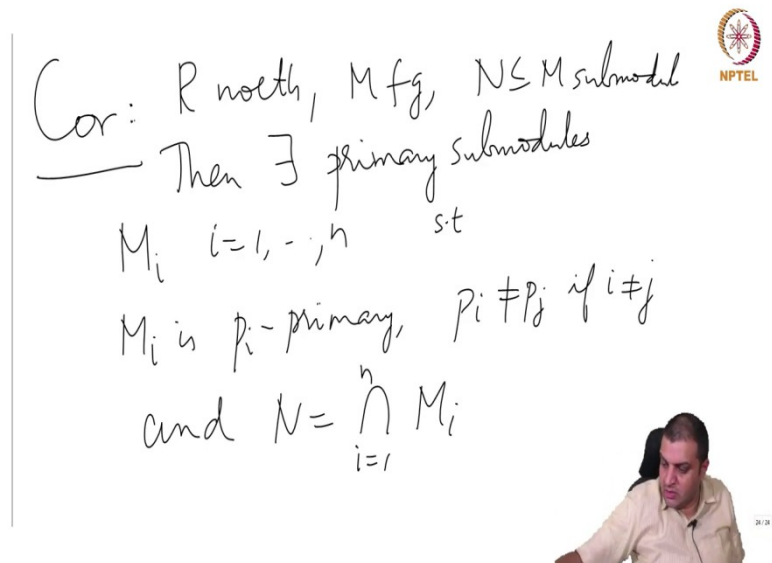 Cor: R noeth, M fg, N ⊆ M submodul
Then ∃ primary submodules
Mi i=1, --, n s.t
Mi is pi-primary, pi ≠ pj if i ≠ j
and N = ⋂ⁿᵢ₌₁ Mi
NPTEL
24 / 24